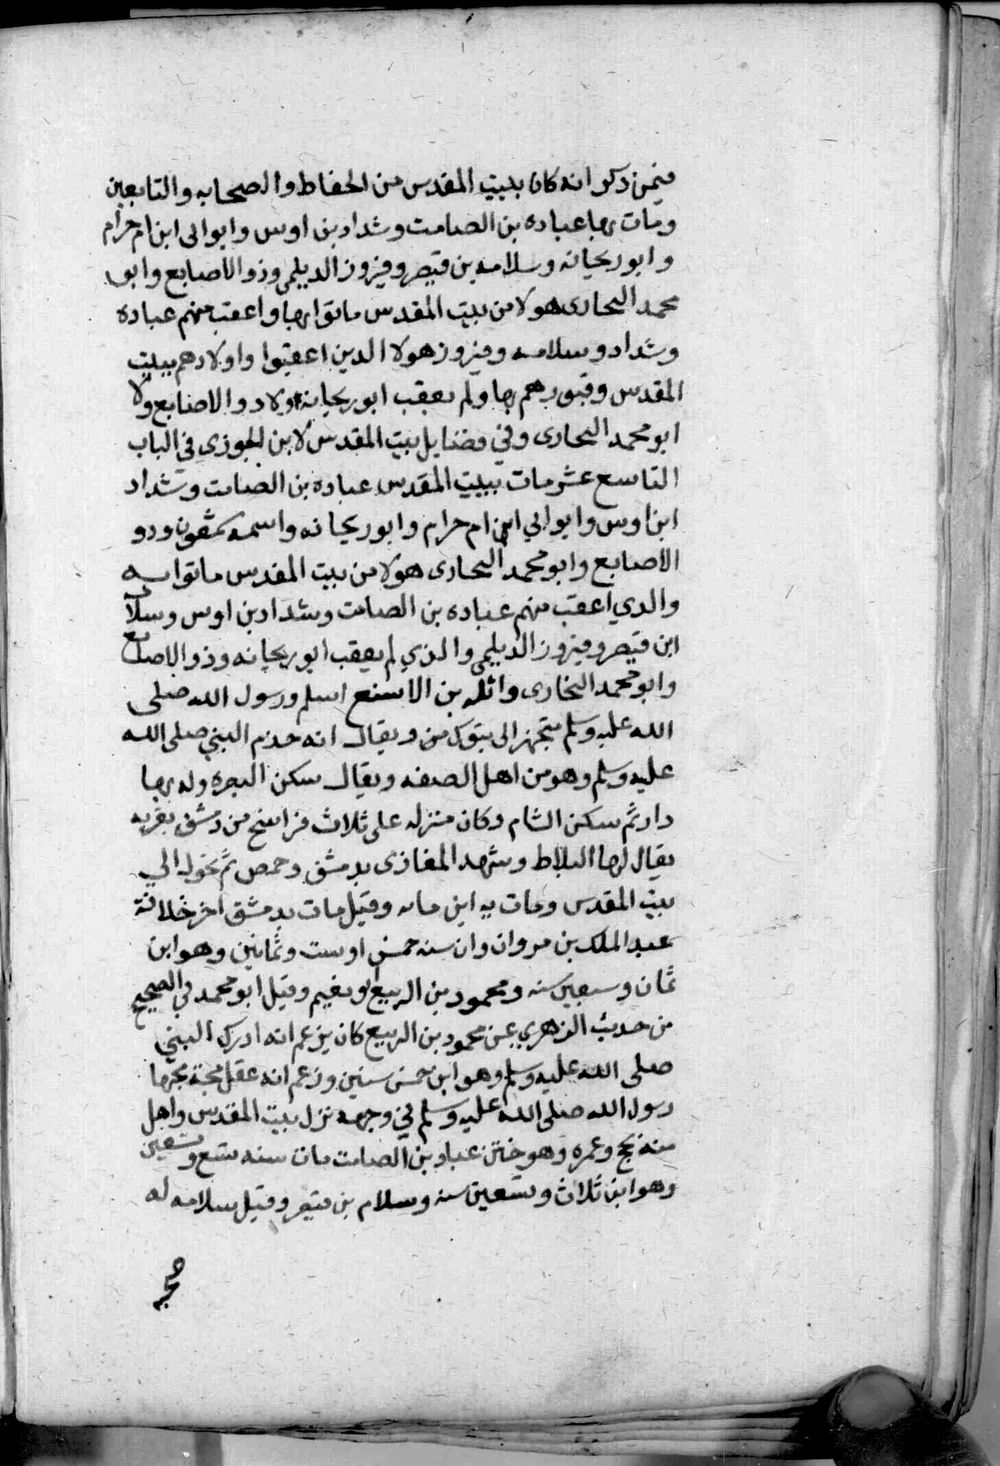 فيمن ذكر انه كان ببيت المقدس من الحفاظ والصحابه والتابعين
ومات بها عباده بن الصامت وشداد بن اوس وابوابى ابن ام حرام
وابو ريحانه وسلامه بن قيصر وفيروز الديلمى وذو الاصابع وابو
محمد النجارى هولا من بيت المقدس ماتوا بها واعقب منهم عباده
وشداد وسلامه وفيروز هولا الدين اعقبوا واولادهم ببيت
المقدس وقبورهم بها ولم يعقب ابو ريحانه ولا ذو الاصابع ولا
ابو محمد النجارى وفي فضايل بيت المقدس لابن الجوزي في الباب
التاسع عشر مات ببيت المقدس عباده بن الصامت وشداد
ابن اوس وابو ابي ابن ام حرام وابو ريحانه واسمه شمعون ودو
الاصابع وابو محمد النجارى هولا من بيت المقدس ماتوا به
والدي اعقب منهم عباده بن الصامت وشداد بن اوس وسلامه
ابن قيصر وفيروز الديلمي والذي لم يعقب ابو ريحانه وذو الاصابع
وابو محمد النخارى واثله بن الاسقع اسلم ورسول الله صلى
الله عليه وسلم يتجهز الى تبوك من ويقال انه خدم النبي صلى الله
عليه وسلم وهو من اهل الصفه ويقال سكن البصره وله بها
دار ثم سكن الشام وكان منزله على ثلاث فراسخ من دمشق بقريه
يقال لها البلاط وشهد المغازى بدمشق وحمص ثم تحول الي
بيت المقدس ومات به ابن مايه وقيل مات بدمشق اخر خلافة
عبد الملك بن مروان وان سنه خمس او ست وثمانين وهو ابن
ثمان وسبعين سنه ومحمود بن الربيع ابو نعيم وقيل ابو محمد في الصحيح
من حديث الزهري عن محمود بن الربيع كان يزعم انه ادرك النبي
صلى الله عليه وسلم وهو ابن خمس سنين وزعم انه عقل مجة مجها
رسول الله صلى الله عليه وسلم في وجهه نزل بيت المقدس واهل
منه بحج وعمره وهو ختن عباد بن الصامت مات سنه تسع وتسعين
وهو ابن ثلاث وتسعين سنه وسلام بن قيصر وقيل سلامه له
صحبه